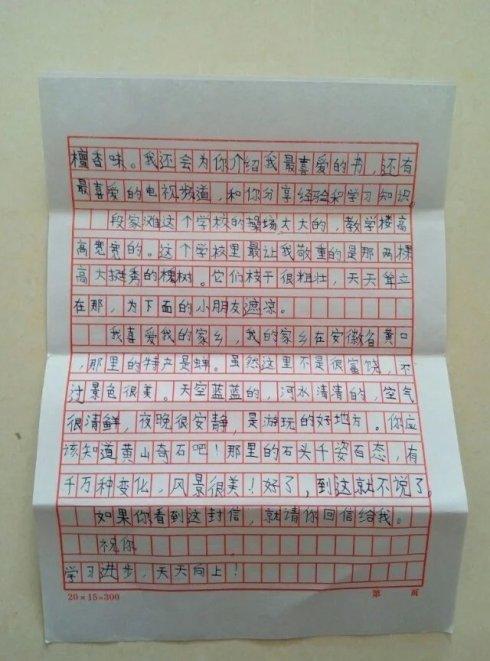 檀香味。我还会为你介绍我最喜爱的书,还有
最喜爱的电视频道,和你分享经验和学习知识。
段家滩这个学校的操场大大的,教学楼高
高宽宽的。这个学校里最让我敬重的是那两棵
高大挺秀的槐树。它们枝干很粗壮,天天耸立
在那,为下面的小朋友遮凉。
我喜爱我的家乡,我的家乡在安徽省黄口
,那里的特产是蝉。虽然这里不是很富饶,不
过景色很美。天空蓝蓝的,河水清清的,空气
很清鲜,夜晚很安静,是游玩的好地方。你应
该知道黄山奇石吧!那里的石头千姿百态,有
千万种变化,风景很美!好了,到这就不说了。
如果你看到这封信,就请你回信给我。
祝你
学习进步,天天向上!
20×15=300 第 页